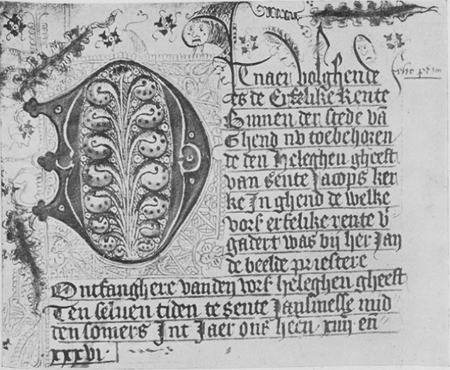 DTnaer volghende
es de Erfelike Rente
Binnen der stede vā
Ghend nv toebehoren
de den heleghen gheest
van sente Jacops ker
ke In ghend de welke
vors erfelike rente v̄
gadert was bij her Jan
de beelde priestere
Ontfanghere vanden vors heleghen gheest
Ten seluen tiden te sente Jansmesse mid
den somers Int Jaer ons heeren xiiij eñ
xxxvi